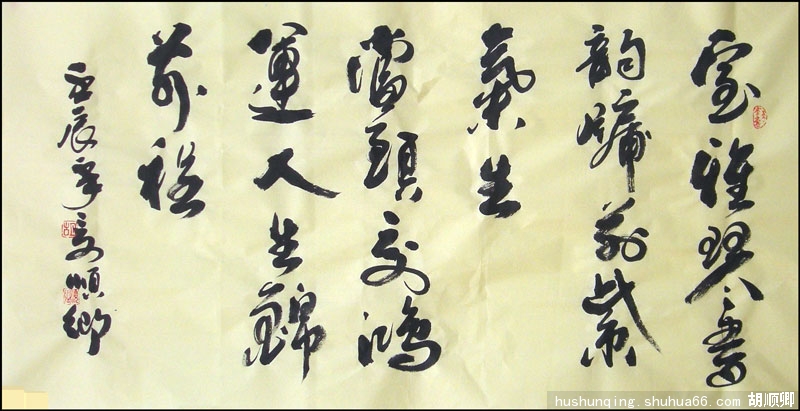 室雅琴書
韵牖前紫
氣生
當頭交鴻
運人生錦
前程
壬辰年夏順卿
hushunqing.shuhua66.com 胡顺卿